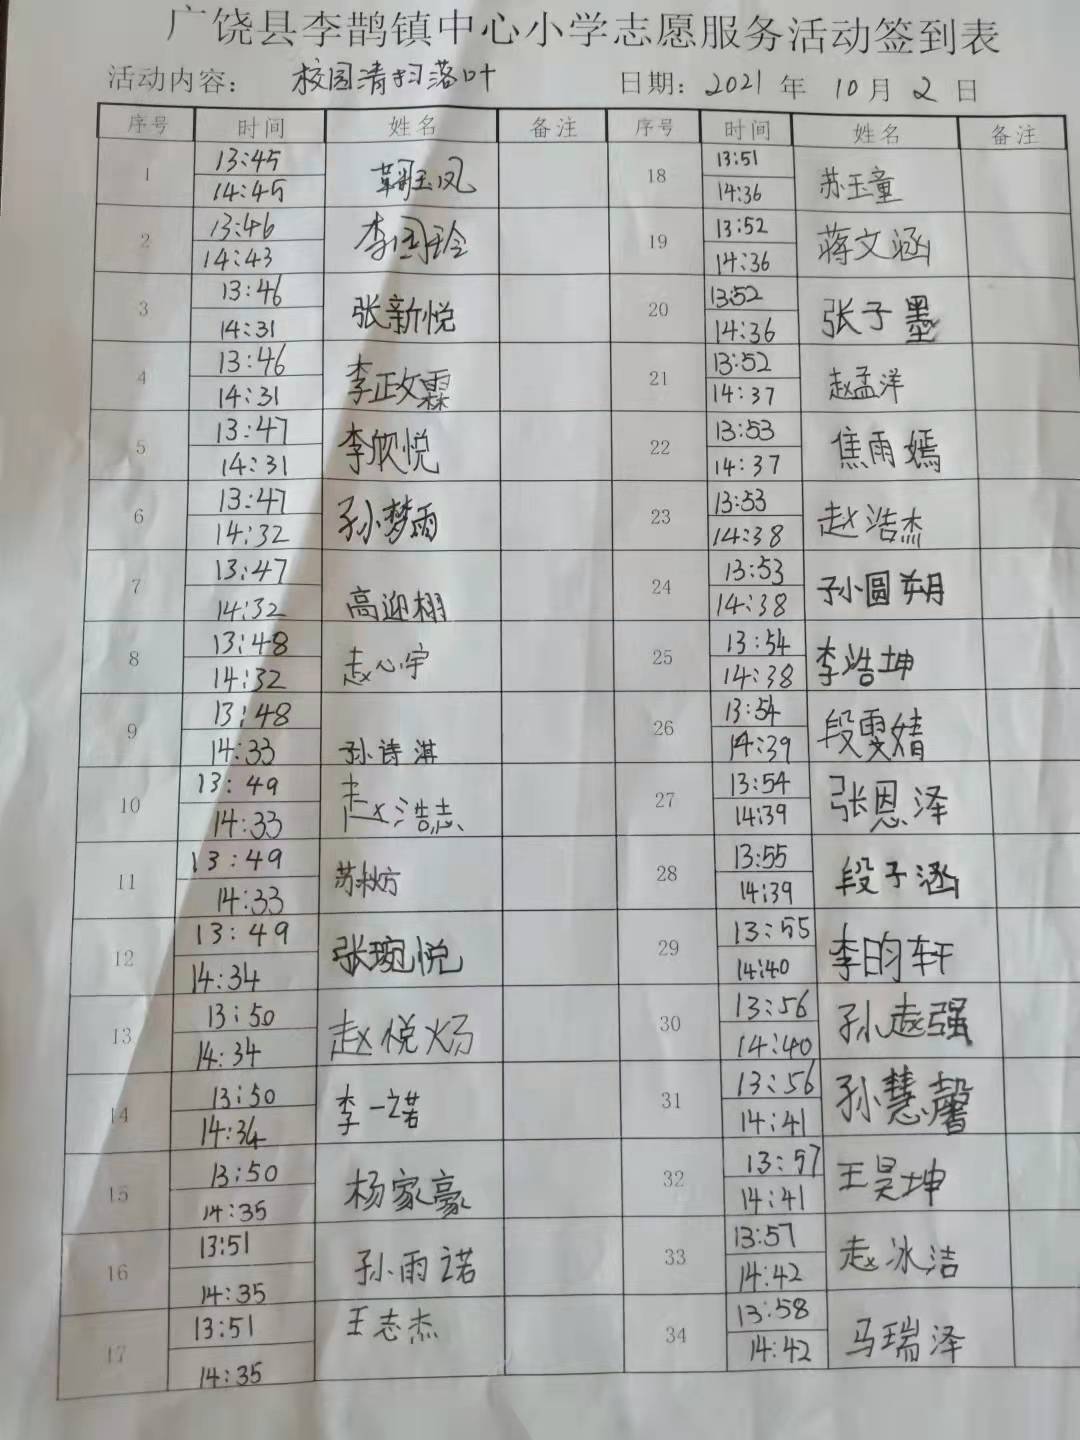 广饶县李鹊镇中心小学志愿服务活动签到表
活动内容: 校园清扫落叶 日期: 2021 年 10 月 2 日
序号 时间 姓名 备注 序号 时间 姓名 备注
1 13:45 14:45 玉凤 18 13:51 14:36 苏玉童
2 13:46 14:43 李国玲 19 13:52 14:36 蒋文涵
3 13:46 14:31 张新悦 20 13:52 14:36 张子墨
4 13:46 14:31 李政霖 21 13:52 14:37 赵孟洋
5 13:47 14:31 李欣悦 22 13:53 14:37 焦雨嫣
6 13:47 14:32 孙梦雨 23 13:53 14:38 赵浩杰
7 13:47 14:32 高迎栩 24 13:53 14:38 孙圆朔
8 13:48 14:32 赵心宇 25 13:54 14:38 李浩坤
9 13:48 14:33 孙诗淇 26 13:54 14:39 段雯婧
10 13:49 14:33 赵浩志 27 13:54 14:39 张恩泽
11 13:49 14:33 苏秋方 28 13:55 14:39 段子涵
12 13:49 14:34 张琬悦 29 13:55 14:40 李昀轩
13 13:50 14:34 赵悦炀 30 13:56 14:40 孙赵强
14 13:50 14:34 李一诺 31 13:56 14:41 孙慧馨
15 13:50 14:35 杨家豪 32 13:57 14:41 王昊坤
16 13:51 14:35 孙雨诺 33 13:57 14:42 赵冰洁
17 13:51 14:35 王志杰 34 13:58 14:42 马瑞泽